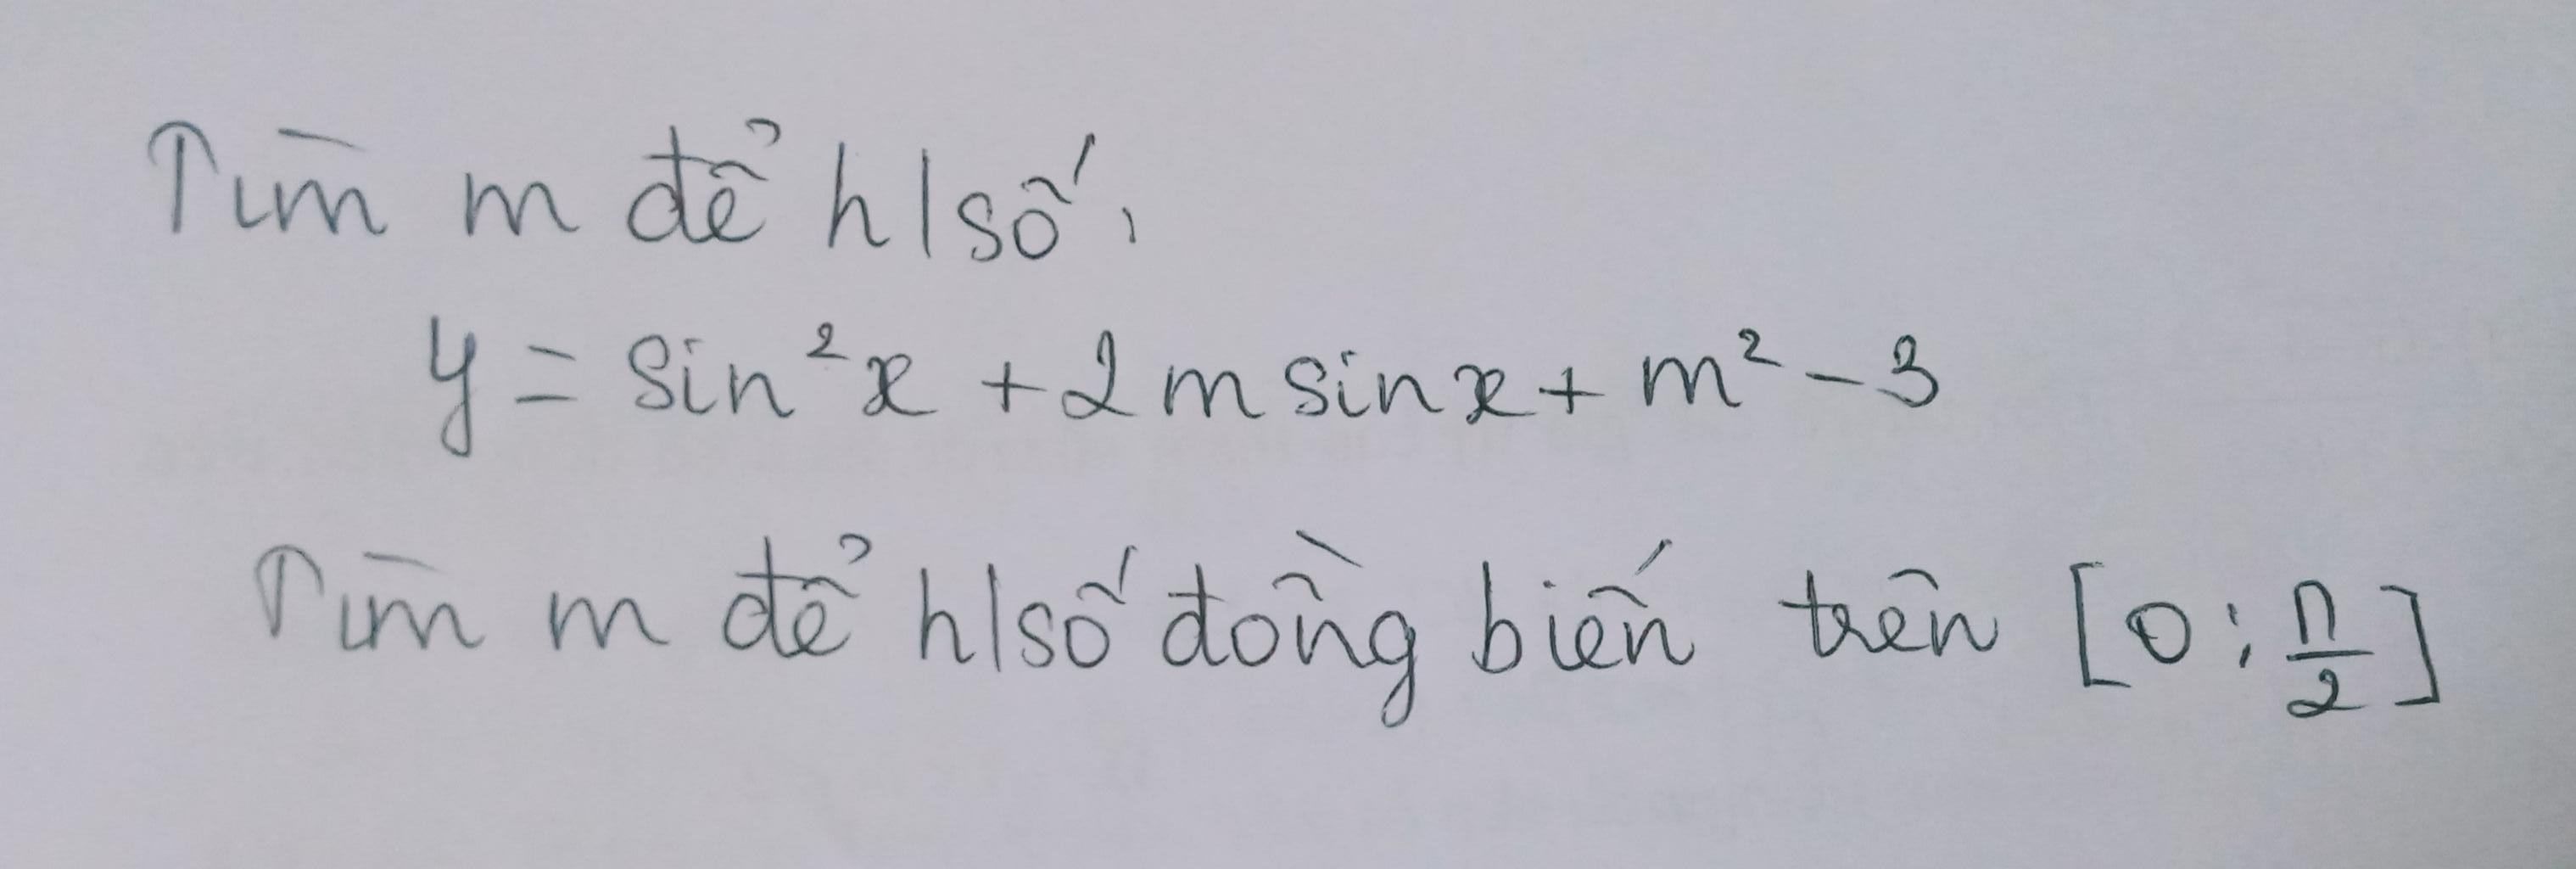 Tìm m để h/số:
y = sin²x + 2m sinx + m² - 3
Tìm m để h/số đồng biến trên [0; π/2]